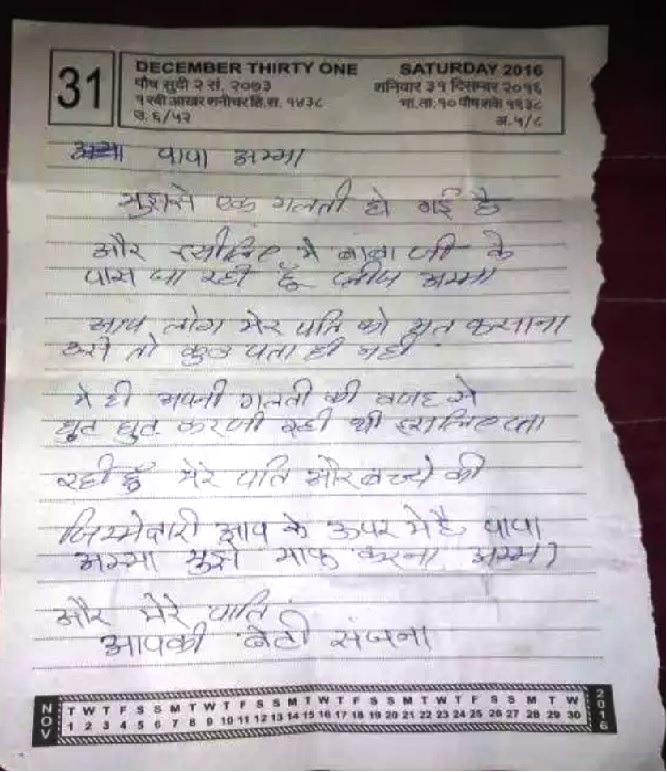 31
DECEMBER THIRTY ONE SATURDAY 2016
पौष सुदी २ सं. २०७३ शनिवार ३१ दिसम्बर २०१६
१ रबी आखर शनीचर हि.स. १४३८ भा.ता. १० पौष शके १९३८
उ. ६/५२ अ. ५/८
पापा अम्मा
मुझसे एक गलती हो गई है
और इसीलिए मै बाबा जी के
पास जा रही हूँ प्लीज अम्मा
आप लोग मेरे पति को मत फसाना
उसे तो कुछ पता ही नही
मे ही अपनी गलती की वजह से
घुट घुट कर जी रही थी इसलिए जा
रही हूँ मेरे पति और बच्चे की
जिम्मेदारी आप के ऊपर मे है पापा
अम्मा मुझे माफ करना अम्मा
और मेरे पति
आपकी बेटी संजना
NOV T W T F S S M T W T F S S M T W T F S S M T W T F S S M T W 2016
1 2 3 4 5 6 7 8 9 10 11 12 13 14 15 16 17 18 19 20 21 22 23 24 25 26 27 28 29 30